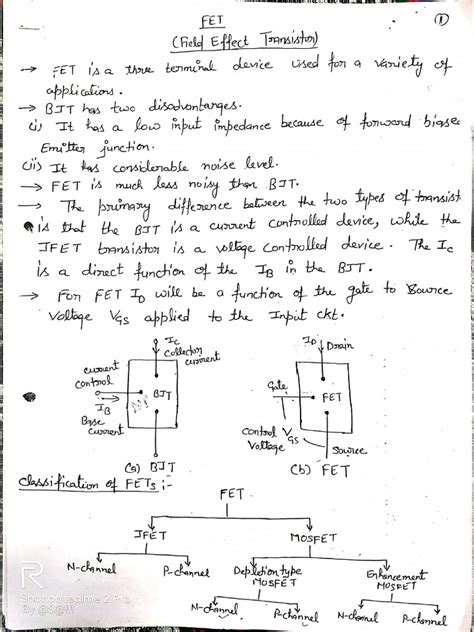 FET
①
(Field Effect Transistor)
→ FET is a three terminal device used for a variety of
applications.
→ BJT has two disadvantanges.
(i) It has a low input impedance because of forward biased
Emitter junction.
(ii) It has considerable noise level.
→ FET is much less noisy than BJT.
→ The primary difference between the two types of transist
is that the BJT is a current controlled device, while the
JFET transistor is a voltage controlled device. The Ic
is a direct function of the IB in the BJT.
→ For FET ID will be a function of the gate to Source
Voltage VGS applied to the Input ckt.
Ic
Collector
current
current
control
BJT
IB
Base
current
(a) BJT
ID
Drain
Gate
FET
Control VGS
Voltage
Source
(b) FET
classification of FETs :-
FET
JFET
MOSFET
N-channel
P-channel
Depletion type
MOSFET
Enhancement
MOSFET
N-channel
P-channel
N-channel
P-channel
R
Shot on realme 2 Pro
By @S@M!